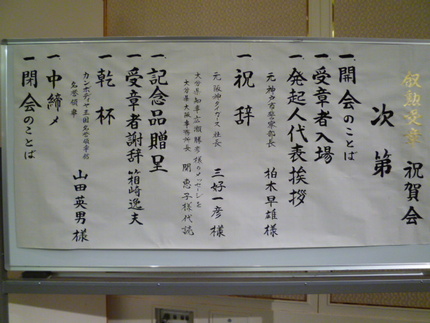 叙勲受章 祝賀会
次第
一 開会のことば
一 受章者入場
一 発起人代表挨拶
元 神戸市警察部長 柏木早雄様
一 祝辞
元 阪神タイガース社長 三好一彦様
大分県知事 広瀬勝貞様のメッセージを
大分県大阪事務所長 関恵子様代読
一 記念品贈呈
一 受章者謝辞 箱崎逸夫
一 乾杯
カンボディア王国名誉領事部
名誉領事 山田英男様
一 中締メ
一 閉会のことば